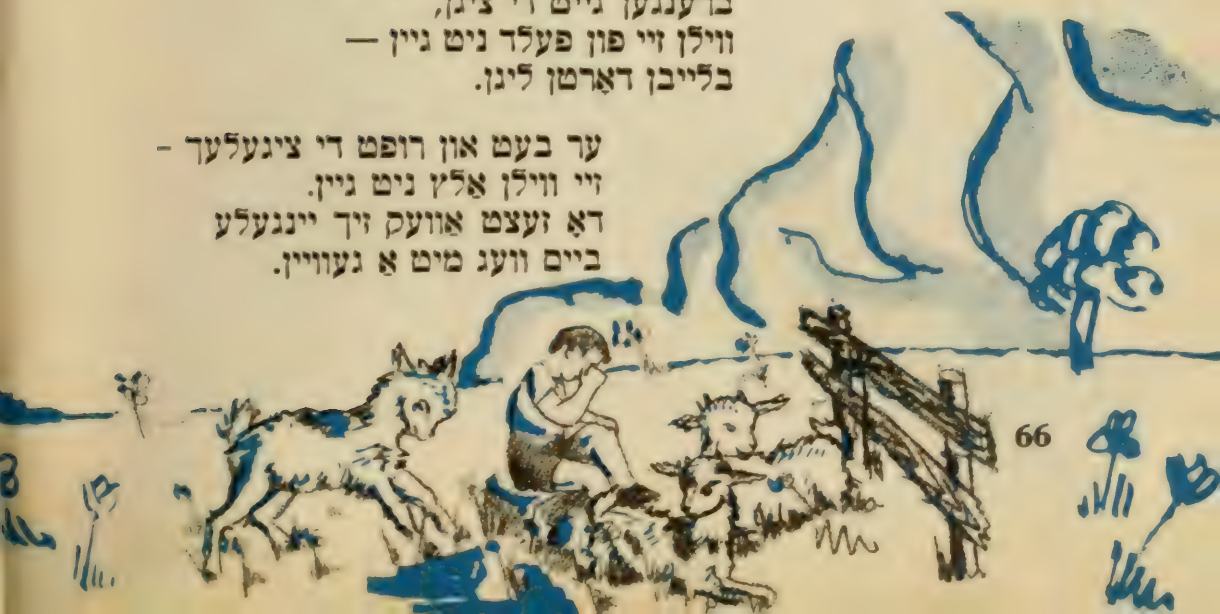 ברענגען גייט די ציגן,
ווילן זיי פון פעלד ניט גיין —
בלייבן דאָרטן ליגן.
ער בעט און רופט די ציגעלעך -
זיי ווילן אַלץ ניט גיין.
דאָ זעצט אַוועק זיך יינגעלע
ביים וועג מיט אַ געוויין.
66